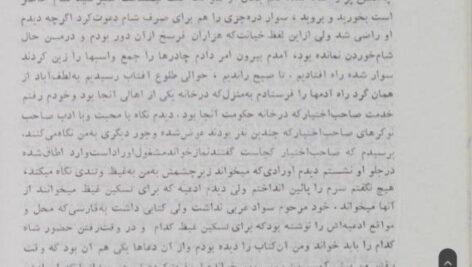 است بخورید و بروید ، سوار دره‌جزی را هم برای صرف شام دعوت‌کرد اگرچه دیدم
او راضی شد ولی ازاین لفظ خیانت‌که هزاران فرسخ ازآن دور بودم و درمن حال
شام‌خوردن نمانده بود، آمدم بیرون امر دادم چادرها را جمع واسبها را زین کردند
سوار شده راه افتادیم . تا صبح راندیم ، حوالی طلوع آفتاب رسیدیم به‌لطف‌آباد از
همان گرد راه آدمها را فرستادم به‌منزل‌که درخانه یکی از اهالی آنجا بود وخودم رفتم
خدمت صاحب‌اختیارکه درخانه حکومت آنجا بود. دیدم نگاه با محبت وبا ادب صاحب
نوکرهای صاحب‌اختیارکه چندین نفر بودند عوض‌شده وجور دیگری به‌من نگاه‌می‌کنند،
پرسیدم که صاحب‌اختیار کجاست گفتندنمازخوانده‌مشغول‌اوراداست‌وارد اطاق‌شده
درجلو او نشستم دیدم اورادی‌که میخواند زیرچشمش به‌من به‌غیظ وتندی نگاه میکند،
هیچ نگفتم سرم را پائین انداختم ولی دیدم ادعیه که برای تسکین غیظ میخوانند از
آنها میخواند ، خود مرحوم سواد عربی نداشت ولی کتابی داشت به‌فارسی‌که محل و
مواقع ادعیه‌اش را نوشته بودکه برای تسکین غیظ کدام و در وقت‌رفتن حضور شاه
کدام را باید خواند ومن آن‌کتاب را دیده بودم واز آن دعاها یکی هم آن بود که وقت